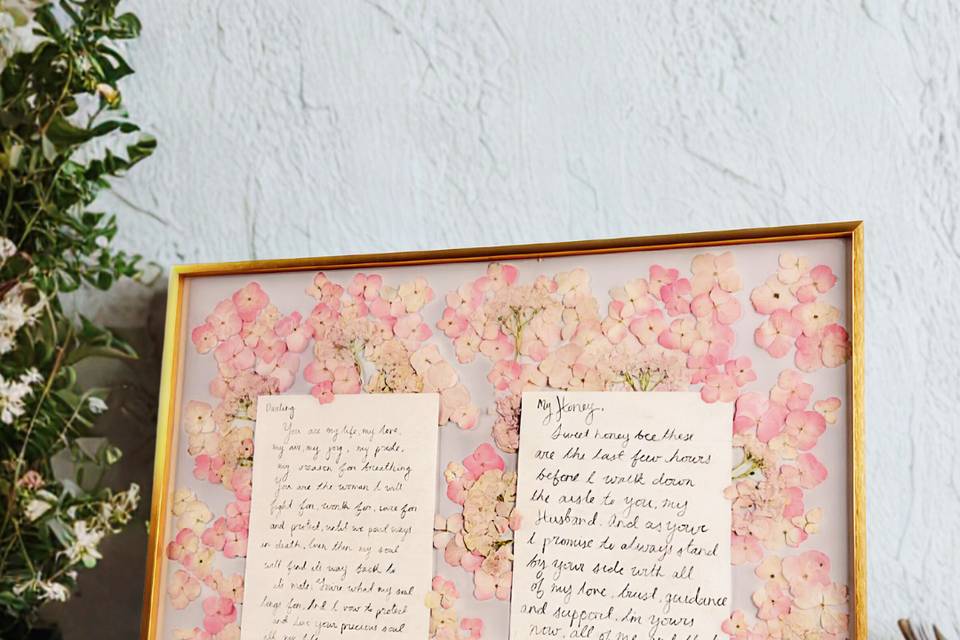 Darling
You are my life, my love,
my air, my joy, my pride,
my reason for breathing
You are the woman I will
fight for, work for, care for
and protect, until we part ways
in death, Even then my soul
will find its way back to
its mate. You're what my soul
longs for. And I vow to protect
and love your precious soul
all my life
My Honey,
Sweet honey bee these
are the last few hours
before I walk down
the aisle to you, my
Husband. And as your
I promise to always stand
by your side with all
of my love, trust, guidance
and support, I'm yours
now, all of me and that